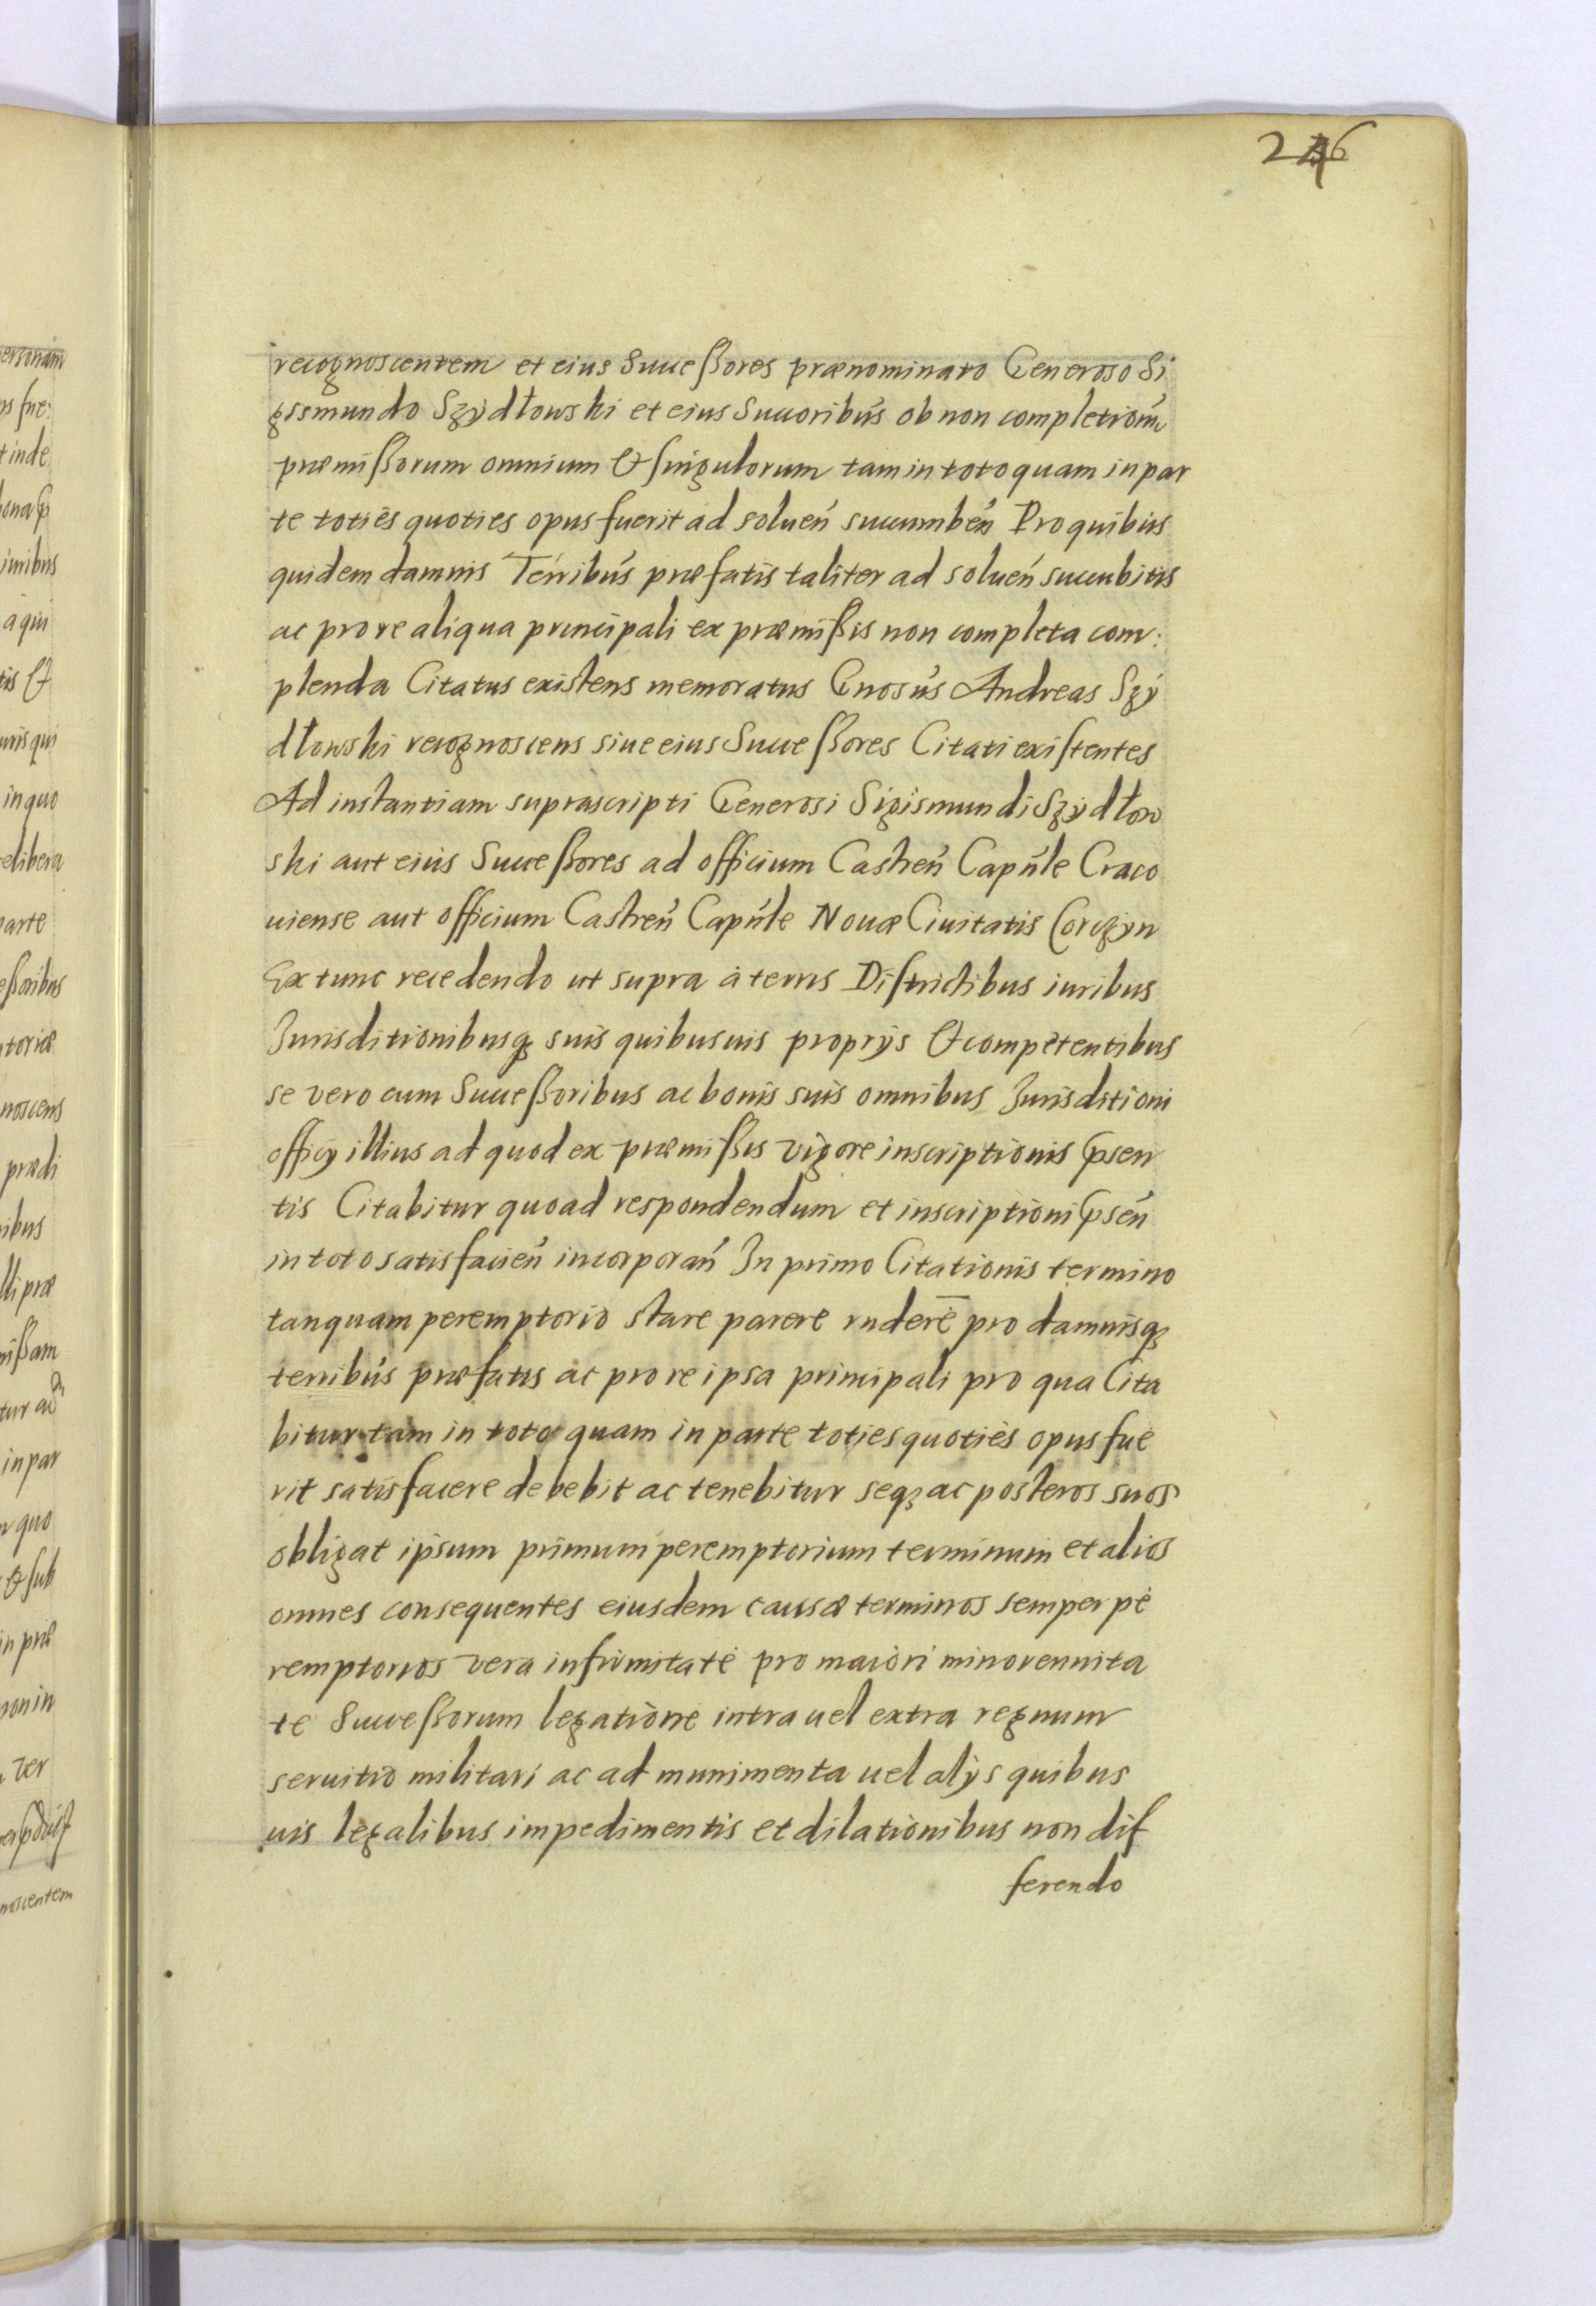 246
recognoscentem et eius Successores prænominato Generoso Si
gismundo Szÿdłowski et eius Succoribús ob non completioném
præmissorum omnium & singulorum tam in toto quam in par
te toties quoties opus fuerit ad soluen̄ succumben̄ Pro quibus
quidem damnis Terribús præfatis taliter ad soluen̄ succubitis
ac pro re aliqua principali ex præmissis non completa com:
plenda Citatus existens memoratus Gnosús Andreas Szÿ
dłowski recognoscens siue eius Successores Citati existentes
Ad instantiam suprascripti Generosi Sigismundi Szÿdłow
ski aut eius Successores ad officium Castren̄ Capn̄le Craco
uiense aut officium Castren̄ Capn̄le Nouæ Ciuitatis Corczyn
Ex tunc recedendo ut supra à terris Districtibus iuribus
Jurisditionibusq̧ suis quibusuis proprijs & competentibus
se vero cum Successoribus ac bonis suis omnibus Jurisditioni
officÿ illius ad quod ex præmissis vigore inscriptionis p̃sen
tis Citabitur quoad respondendum et inscriptioni p̃sen̄
in toto satisfacien̄ incorporan̄ In primo Citationis termino
tanquam peremptorio stare parere rndere̅ pro damnisq̧
terribús præfatis ac pro re ipsa principali pro qua Cita
bitur tam in toto quam in parte toties quoties opus fue
rit satisfacere debebit ac tenebitur seq̧ ac posteros suos
obligat ipsum primum peremptorium terminum et alios
omnes consequentes eiusdem causæ terminos semper pe
remptorios vera infirmitate pro maiori minorennita
te Successorum legatione intra uel extra regnum
seruitio militari ac ad munimenta uel alÿs quibus
uis legalibus impedimentis et dilationibus non dif
ferendo